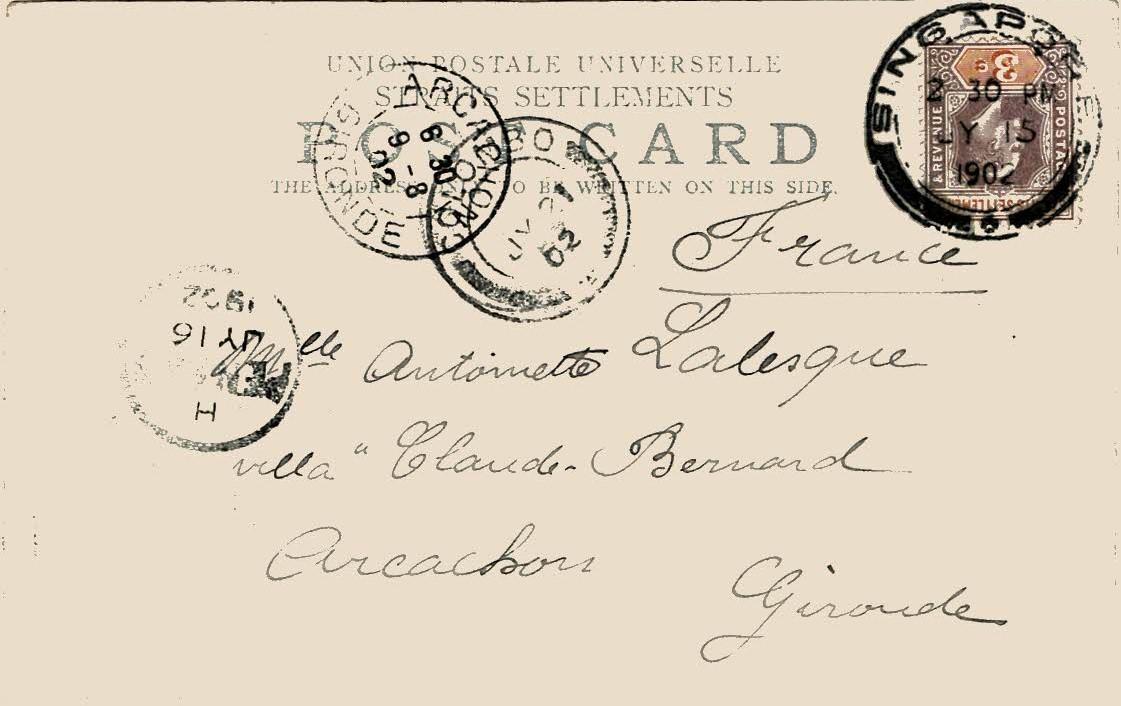 UNION POSTALE UNIVERSELLE
STRAITS SETTLEMENTS
POST CARD
THE ADDRESS ONLY TO BE WRITTEN ON THIS SIDE.
SINGAPORE
2 30 PM
JY 15
1902
3 C
& REVENUE
POSTAGE
SETTLEMENTS
ARCACHON
6 30
9 - 8
02
GIRONDE
COLOMBO
JY 21
02
1902
JY 16
H
France
Melle Antoinette Lalesque
villa "Claude-Bernard
Arcachon
Gironde